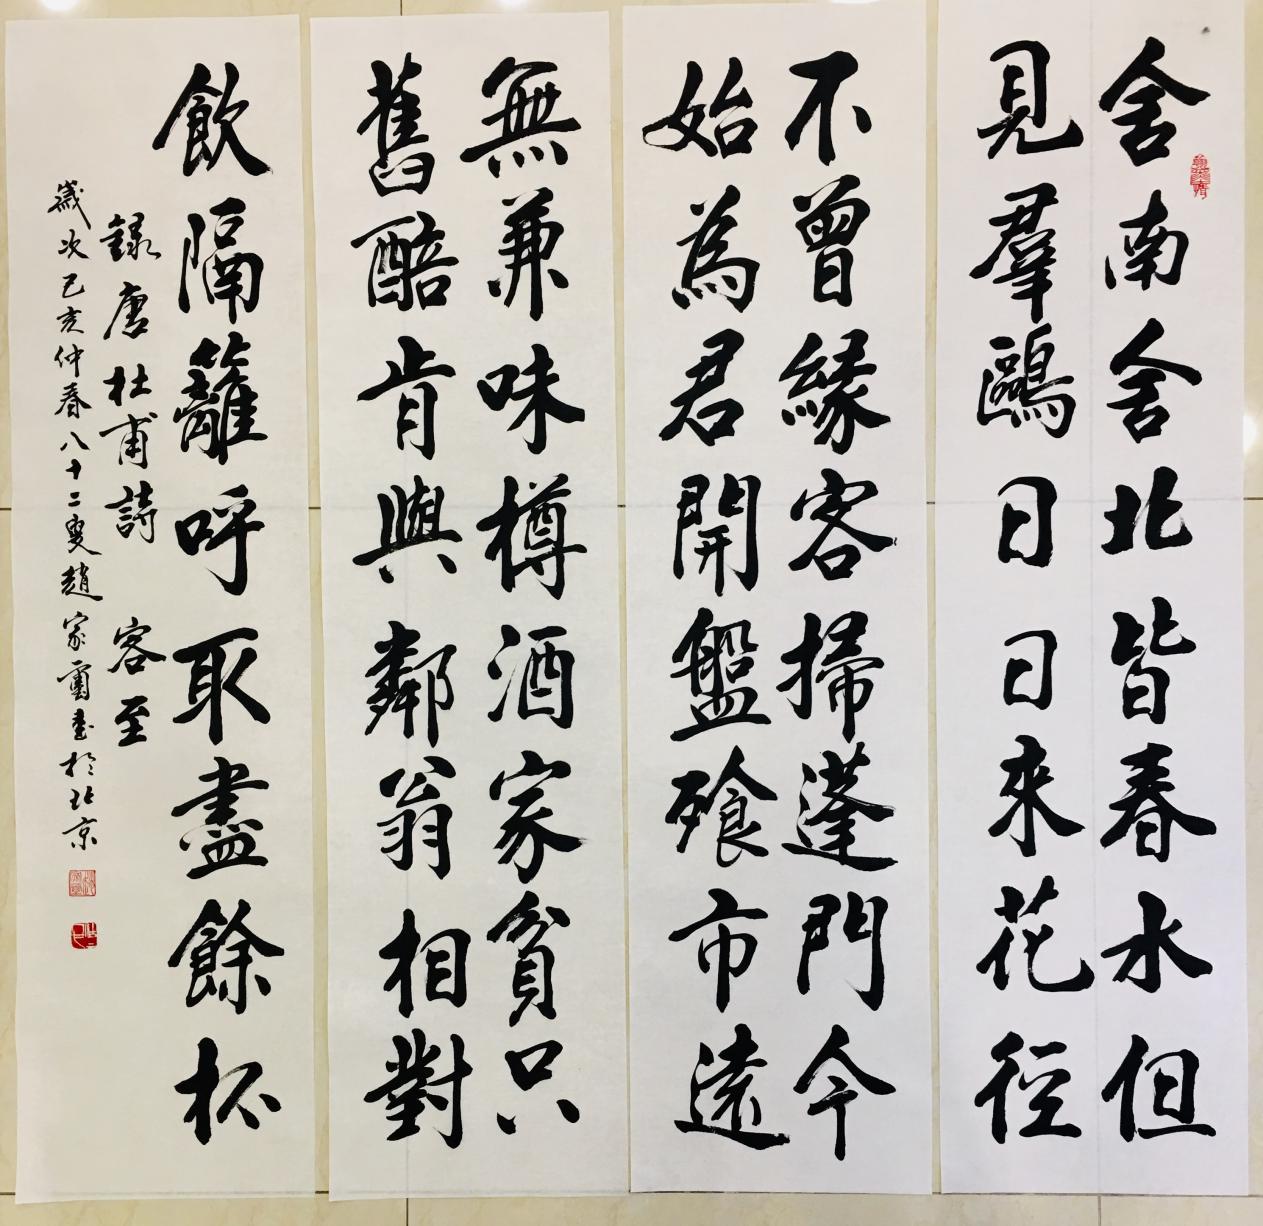 舍南舍北皆春水但
見羣鷗日日來花径
不曾緣客掃蓬門今
始為君開盤飱市遠
無兼味樽酒家貧只
舊醅肯與鄰翁相對
飲隔籬呼取盡餘杯
錄唐杜甫詩 客至
歲次己亥仲春八十二叟趙家璽書於北京